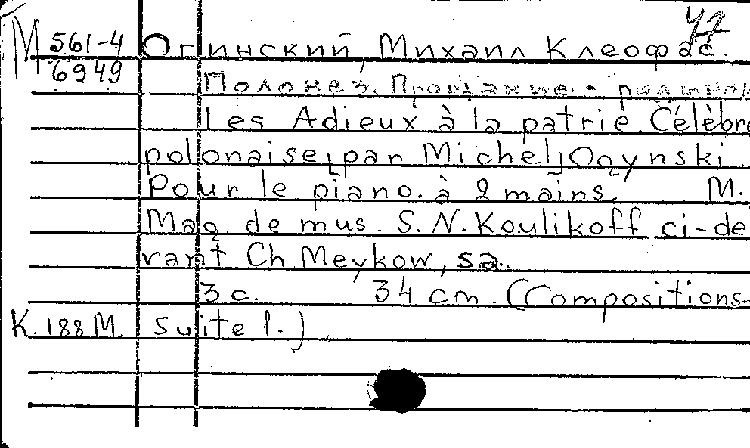 47
М 561-4 Огинский, Михаил Клеофас.
6949
Полонез. Прощание с родиной
Les Adieux à la patrie. Célèbre
polonaise [par Michel] Ogynski.
Pour le piano. à 2 mains. М.,
Mag. de mus. S. N. Koulikoff ci-de
vant Ch Meykow, sa.
3 с. 34 cm. (Compositions-
К. 188 М. suite 1.)